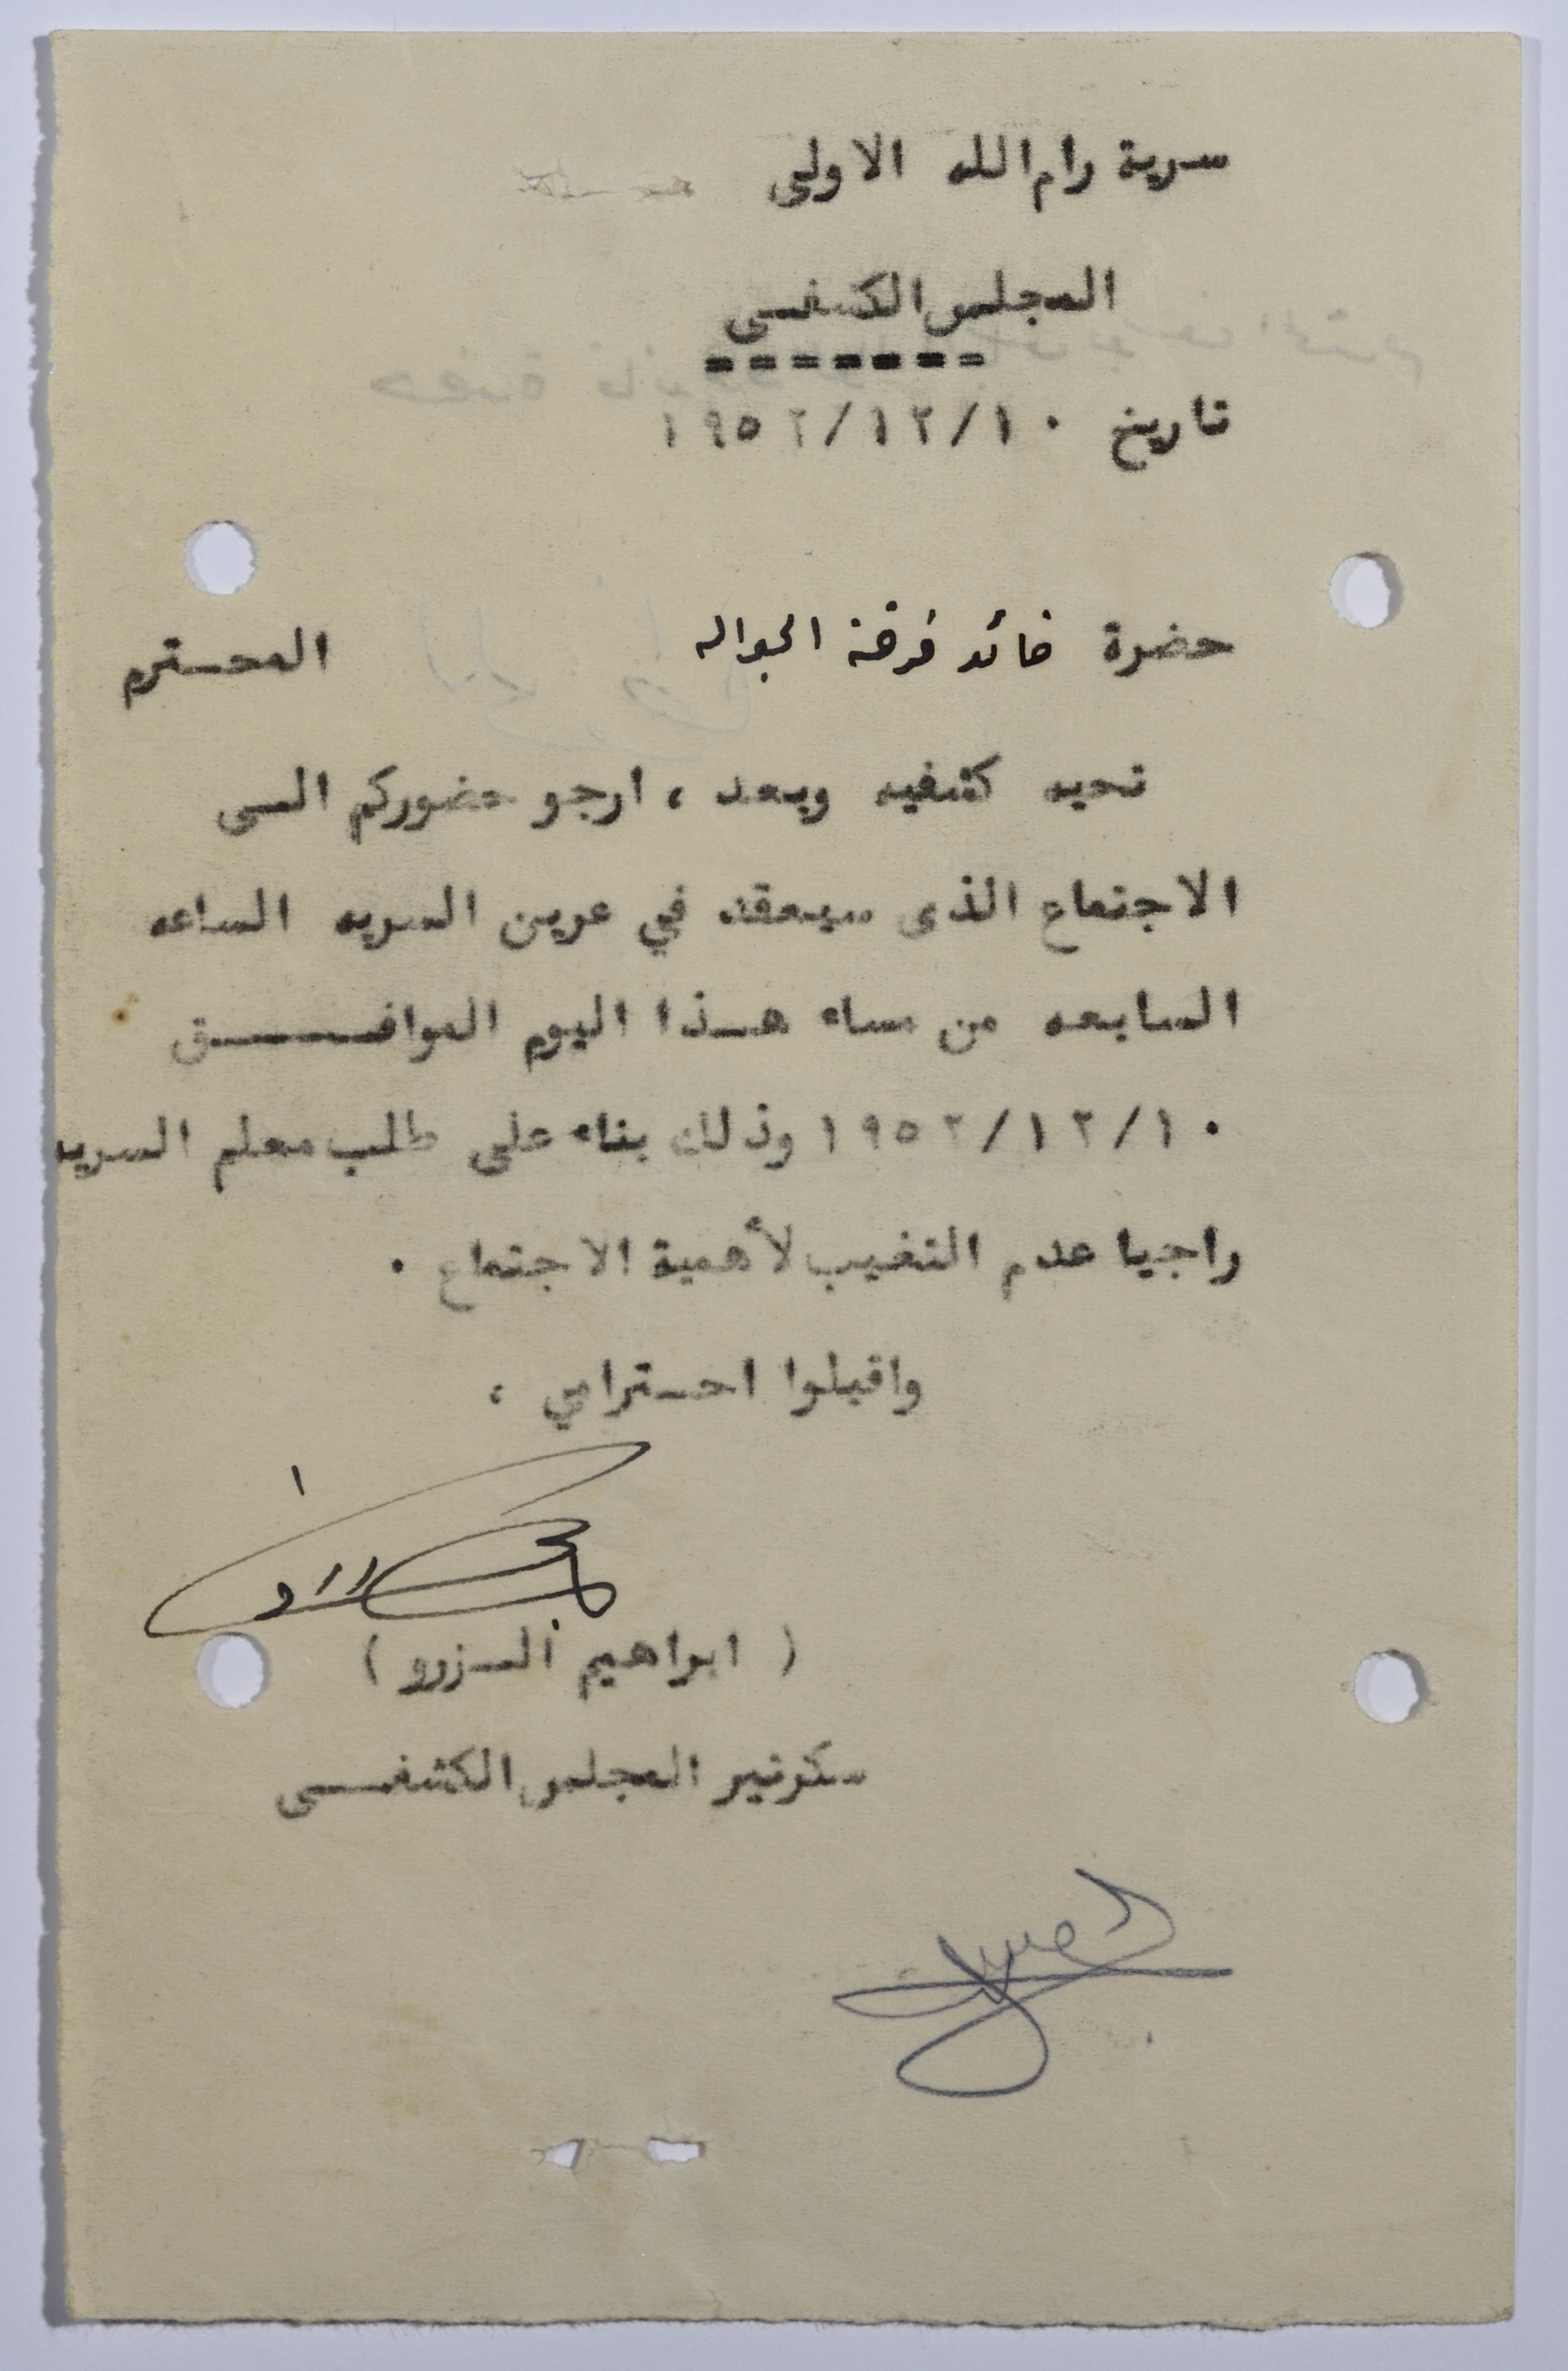 سرية رام الله الاولى
المجلس الكشفــي
تاريخ ١٩٥٢/١٢/١٠
حضرة قائد فرقة الجواله المحــترم
تحيه كشفيه وبعد ، ارجو حضوركم الــى
الاجتماع الذى سيعقد في عرين السريه الساعه
السابعه من مساء هــذا اليوم الموافــــــق
١٩٥٢/١٢/١٠ وذلك بناء على طلب معلم السريه
راجيا عدم التغيب لأهمية الاجتماع .
واقبلوا احــترامي ،
( ابراهيم الــزرو )
سكرتير المجلس الكشفــــي